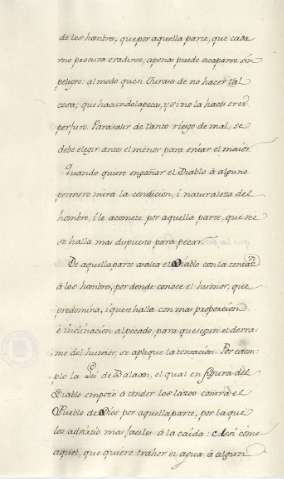 de los hombres, que por aquella parte, que cada
uno peca mas erradizo, apenas puede escaparse sin
peligro: al modo que un Jurase de no hacer tal
cosa; que haciendola peca, y si no la hace es
perjuro. Para salir de tanto riesgo de mal, se
debe elegir antes el menor para evitar el maior.
Quando quiere engañar el Diablo à alguno
primero mira la condicion, i naturaleza del
hombre, i le acomete por aquella parte, que
se halla mas dispuesto para pecar.
De aquella parte asalta el Diablo con la
à los hombres, por donde conoce el humor, que
predomina, i que se halla con mas proporcion
è inclinacion al pecado, para que segun el derra-
me del humor, se aplique la tentacion. Por exem-
plo la de Balaan, el qual en figura del
Diablo empezò à tender los lazos contra el
Pueblo de Dios por aquella parte, por la que
los advirtio mas faciles à la caida: Asi como
aquel, que quiere traher el agua à alguna